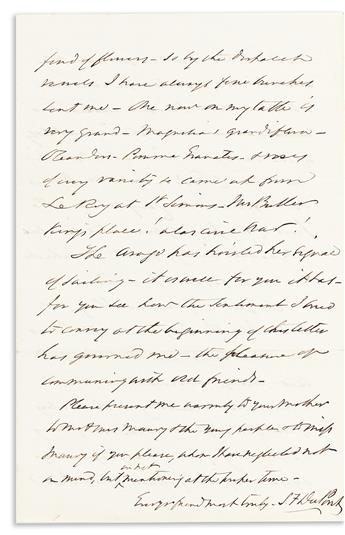 fond of flowers - so by the Dispatch
vessels I have always fine bunches
sent me - One now on my table is
very grand - Magnolia grandiflora -
Oleanders - Pomme Granates - & roses
of every variety & came at from
Le Roy at St Simons - Mr Butler
King's place! alas civil war!
The Arago has hoisted her signal
of sailing - it is well for you it has -
for you see how the sentiment I tried
to convey at the beginning of this letter
has governed me - the pleasure of
communing with old friends -
Please present me warmly to your Mother
to Maury & the young people & to Miss
Maury if you please, whom I have neglected not
in mind, but in not mentioning at the proper time -
Ever yr friend most truly - S F DuPont